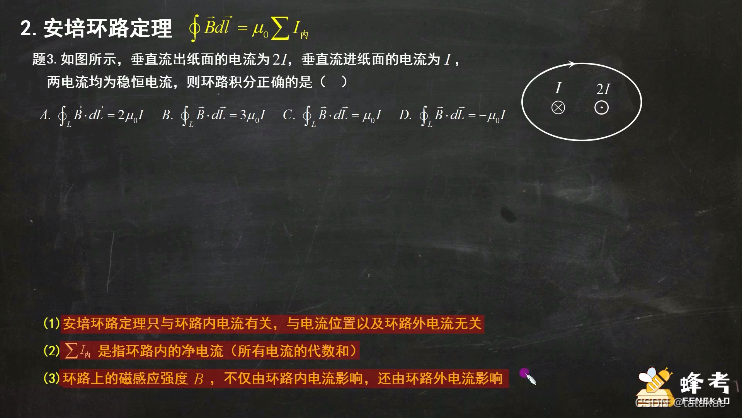 2.安培环路定理 ∮B⃗dl⃗ = μ₀∑I内
题3.如图所示，垂直流出纸面的电流为2I，垂直流进纸面的电流为 I ，
两电流均为稳恒电流，则环路积分正确的是（ ）
A. ∮_L B⃗·dL⃗ = 2μ₀I B. ∮_L B⃗·dL⃗ = 3μ₀I C. ∮_L B⃗·dL⃗ = μ₀I D. ∮_L B⃗·dL⃗ = −μ₀I
I 2I
(1)安培环路定理只与环路内电流有关，与电流位置以及环路外电流无关
(2) ∑I内 是指环路内的净电流（所有电流的代数和）
(3)环路上的磁感应强度 B ，不仅由环路内电流影响，还由环路外电流影响
蜂考
FENGKAO